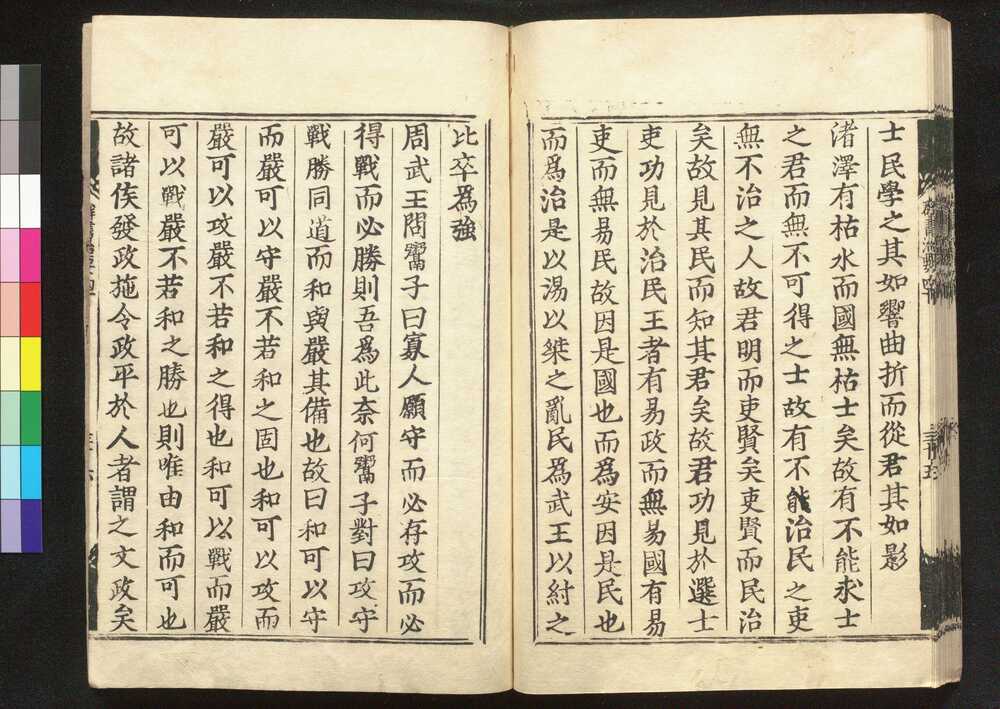 士民學之其如響曲折而從君其如影
渚澤有枯水而國無枯士矣故有不能求士
之君而無不可得之士故有不能治民之吏
無不治之人故君明而吏賢矣吏賢而民治
矣故見其民而知其君矣故君功見於選士
吏功見於治民王者有易政而無易國有易
吏而無易民故因是國也而為安因是民也
而為治是以湯以桀之亂民為武王以紂之
比卒為強
周武王問鬻子曰寡人願守而必存攻而必
得戰而必勝則吾為此奈何鬻子對曰攻守
戰勝同道而和與嚴其備也故曰和可以守
而嚴可以守嚴不若和之固也和可以攻而
嚴可以攻嚴不若和之得也和可以戰而嚴
可以戰嚴不若和之勝也則唯由和而可也
故諸侯發政施令政平於人者謂之文政矣